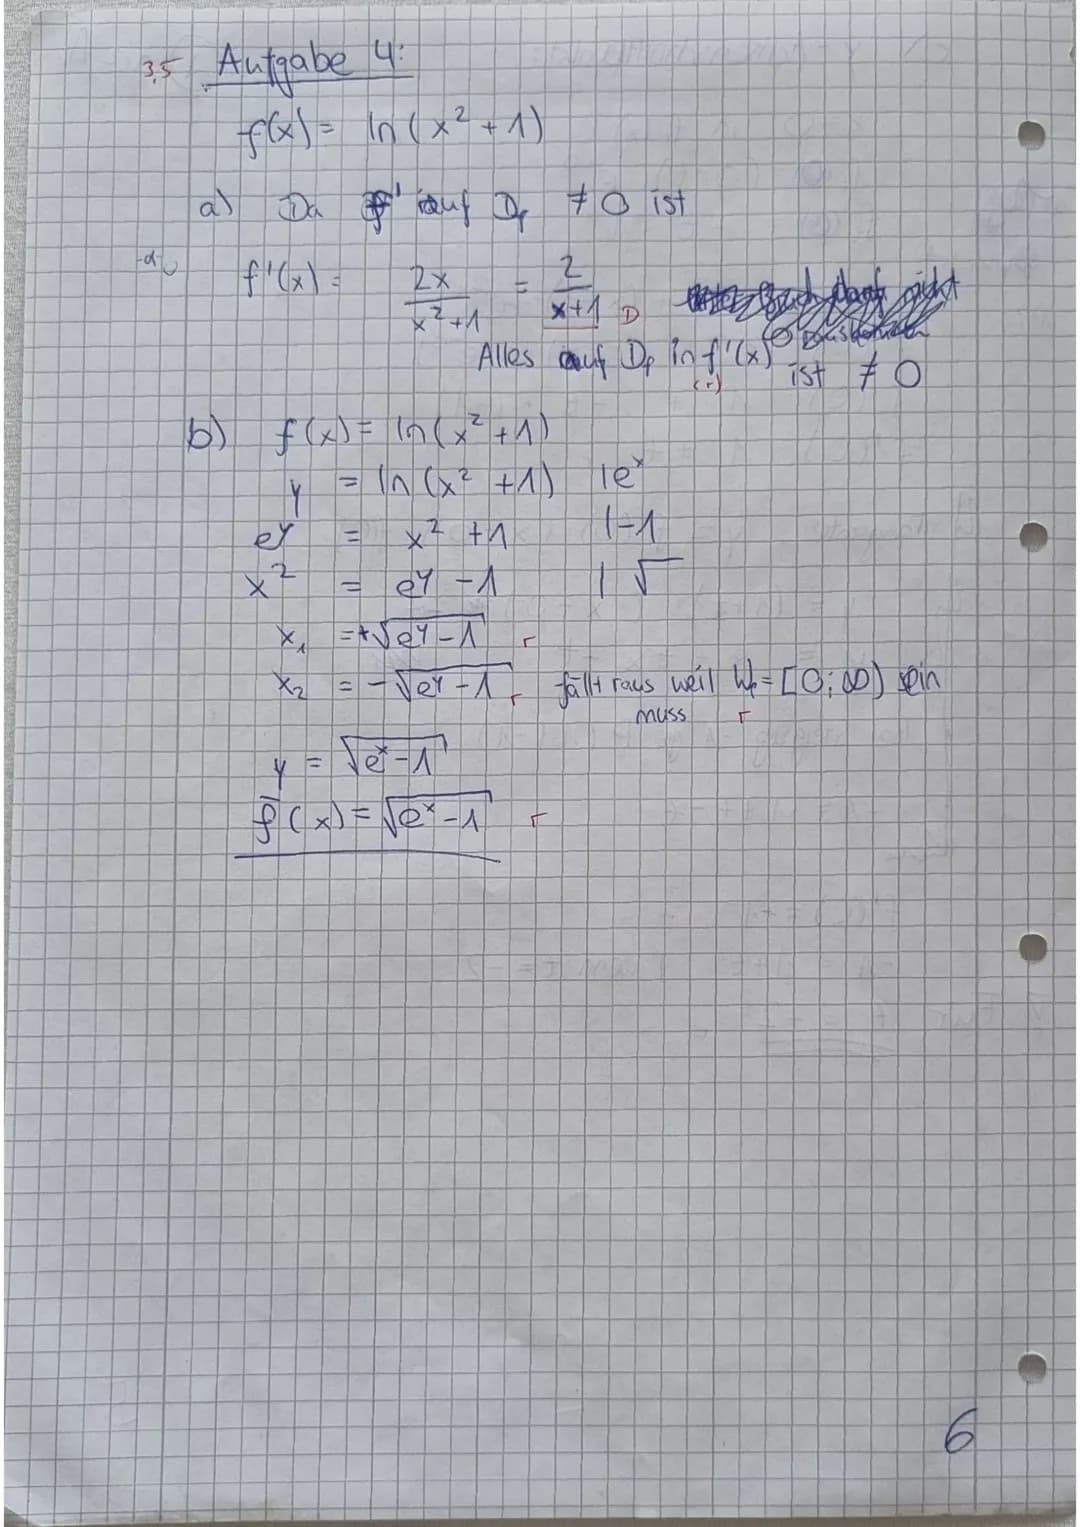 3,5 Aufgabe 4:
f(x) = ln(x² + 1)
a) Da f' auf Df ≠ 0 ist
f'(x) = 2x/(x²+1) = 2/(x+1)
Alles auf Df in f'(x) ist ≠ 0
(r)
b) f(x) = ln(x² + 1)
y = ln(x² + 1) |eˣ
eʸ = x² + 1 |-1
x² = eʸ - 1 | √
x₁ = +√(eʸ - 1) r
x₂ = -√(eʸ - 1) r fällt raus weil Wf = [0; ∞) sein
muss r
y = √(eˣ - 1)
f̄(x) = √(eˣ - 1) r
6